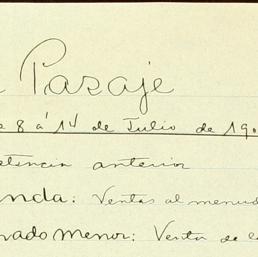 Pasaje
e 8 á 14 de Julio de 190
etencia anterior
nda: Ventas al menud
nado menor: Venta de la